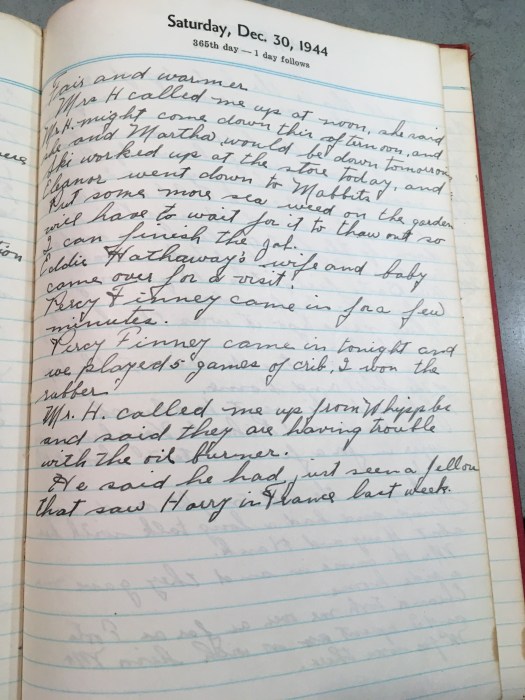 Saturday, Dec. 30, 1944
365th day — 1 day follows
Fair and warmer
Mrs H called me up at noon, she said
Mr. H. might come down this afternoon, and
she and Martha would be down tomorrow
Ski worked up at the store today, and
Eleanor went down to Mabbits
Put some more sea weed on the garden
will have to wait for it to thaw out so
I can finish the job.
Eddie Hathaway's wife and baby
came over for a visit.
Percy Finney came in for a few
minutes.
Percy Finney came in tonight and
we played 5 games of crib, I won the
rubber
Mr. H. called me up from
and said they are having trouble
with the oil burner.
He said he had just seen a fellow
that saw Harry in France last week.